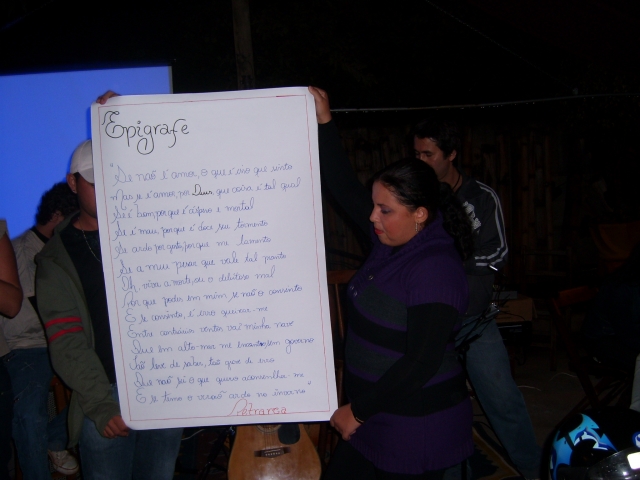 Epígrafe
"Se não é amor, o que é isso que sinto
Mas se é amor, por Deus, que coisa é tal qual
Se é bom, por que é áspero e mortal
Se é mau, por que é doce seu tormento
Se ardo por gosto, por que me lamento
Se a meu pesar que vale tal pranto
Oh viva a morte, ou o deleitoso mal
Por que podes em mim, se não o consinto
E se consinto, é erro queixar-me
Entre contrários ventos vai minha nave
Que em alto-mar me encontro sem governo
Tão leve de saber, tão grave de erro
Que não sei o que quero aconselhar-me
E se tremo o verão ardo no inverno"
Petrarca